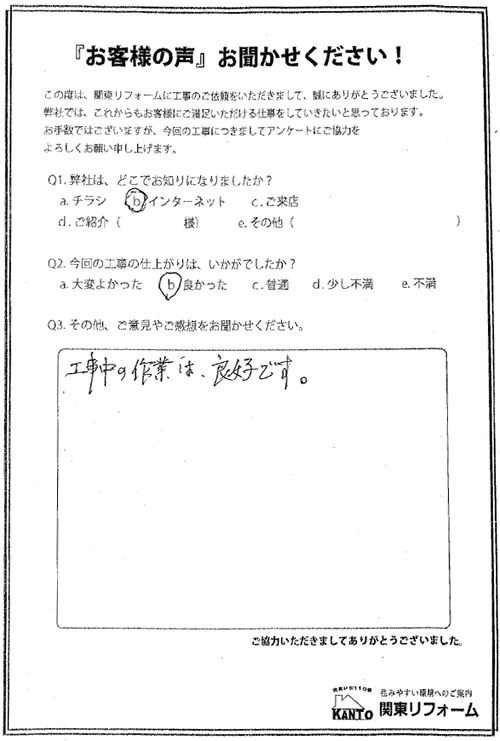 『お客様の声』お聞かせください！
この度は、関東リフォームに工事のご依頼をいただきまして、誠にありがとうございました。
弊社では、これからもお客様にご満足いただける仕事をしていきたいと思っております。
お手数ではございますが、今回の工事につきましてアンケートにご協力を
よろしくお願い申し上げます。
Q1. 弊社は、どこでお知りになりましたか？
a. チラシ b インターネット c. ご来店
d. ご紹介（ 様） e. その他（ ）
Q2. 今回の工事の仕上がりは、いかがでしたか？
a. 大変よかった b 良かった c. 普通 d. 少し不満 e. 不満
Q3. その他、ご意見やご感想をお聞かせください。
工事中の作業は、良好です。
ご協力いただきましてありがとうございました。
住みやすい環境へのご案内
KANTO 関東リフォーム